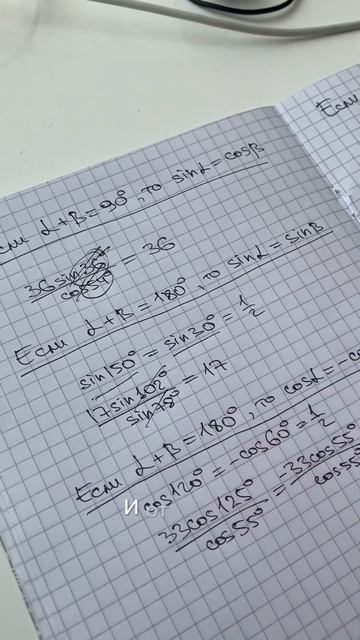 Если α+β=90°, то sinα=cosβ
36sin36°/cos54° = 36
Если α+β=180°, то sinα=sinβ
sin150°=sin30°=1/2
17sin102°/sin78° = 17
Если α+β=180°, то cosα=-co
cos120°=-cos60°=1/2
33cos125°/cos55° = 33cos55°/cos55°
Если
И от